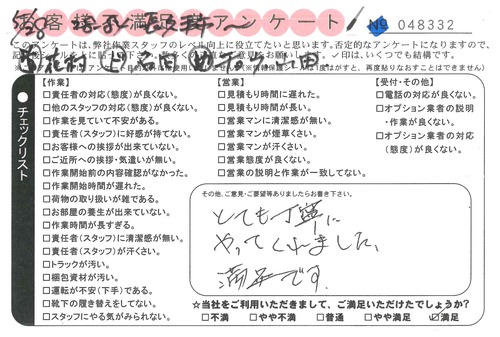 お客様満足度アンケート
№ 048332
このアンケートは、弊社作業スタッフのレベル向上に役立てたいと思います。否定的なアンケートになりますので、
チェックリスト
【作業】
□責任者の対応(態度)が良くない。
□他のスタッフの対応(態度)が良くない。
□作業を見ていて不安がある。
□責任者(スタッフ)に好感が持てない。
□お客様への挨拶が出来ていない。
□ご近所への挨拶・気遣いが無い。
□作業開始前の内容確認がなかった。
□作業開始時間が遅れた。
□荷物の取り扱いが雑である。
□お部屋の養生が出来ていない。
□作業時間が長すぎる。
□責任者(スタッフ)に清潔感が無い。
□責任者(スタッフ)が汗くさい。
□トラックが汚い。
□梱包資材が汚い。
□運転が不安(下手)である。
□靴下の履き替えをしてない。
□スタッフにやる気がみられない。
【営業】
□見積もり時間に遅れた。
□見積もり時間が長い。
□営業マンに清潔感が無い。
□営業マンが煙草くさい。
□営業マンが汗くさい。
□営業態度が良くない。
□営業の説明と作業が一致してない。
【受付・その他】
□電話の対応が良くない。
□オプション業者の説明
・作業が良くない。
□オプション業者の対応
(態度)が良くない。
その他、ご意見・ご要望等ありましたらお書き下さい。
とても丁寧に
やってくれました、
満足です。
☆当社をご利用いただきまして、ご満足いただけたでしょうか?
□不満 □やや不満 □普通 □やや満足 ☑満足